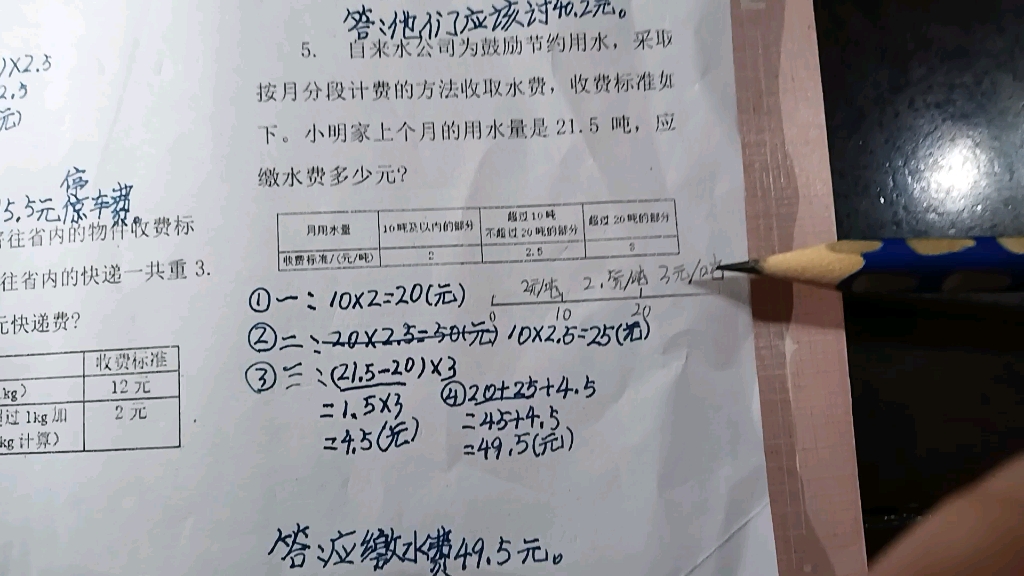 答:他们应该讨40.2元。
)×2.5
2.5
元)
停
5.5元停车费。
寄往省内的物件收费标
往省内的快递一共重3.
元快递费?
收费标准
kg) 12元
过1kg加 2元
kg计算)
5. 自来水公司为鼓励节约用水，采取
按月分段计费的方法收取水费，收费标准如
下。小明家上个月的用水量是21.5 吨，应
缴水费多少元?
月用水量 10吨及以内的部分 超过10吨 不超过20吨的部分 超过20吨的部分
收费标准/(元/吨) 2 2.5 3
2元/吨 2.5元/吨 3元/吨
0 10 20
①一:10×2=20(元)
②二:20×2.5=50(元) 10×2.5=25(元)
③三:(21.5-20)×3
=1.5×3
=4.5(元)
④20+25+4.5
=45+4.5
=49.5(元)
答:应缴水费49.5元。